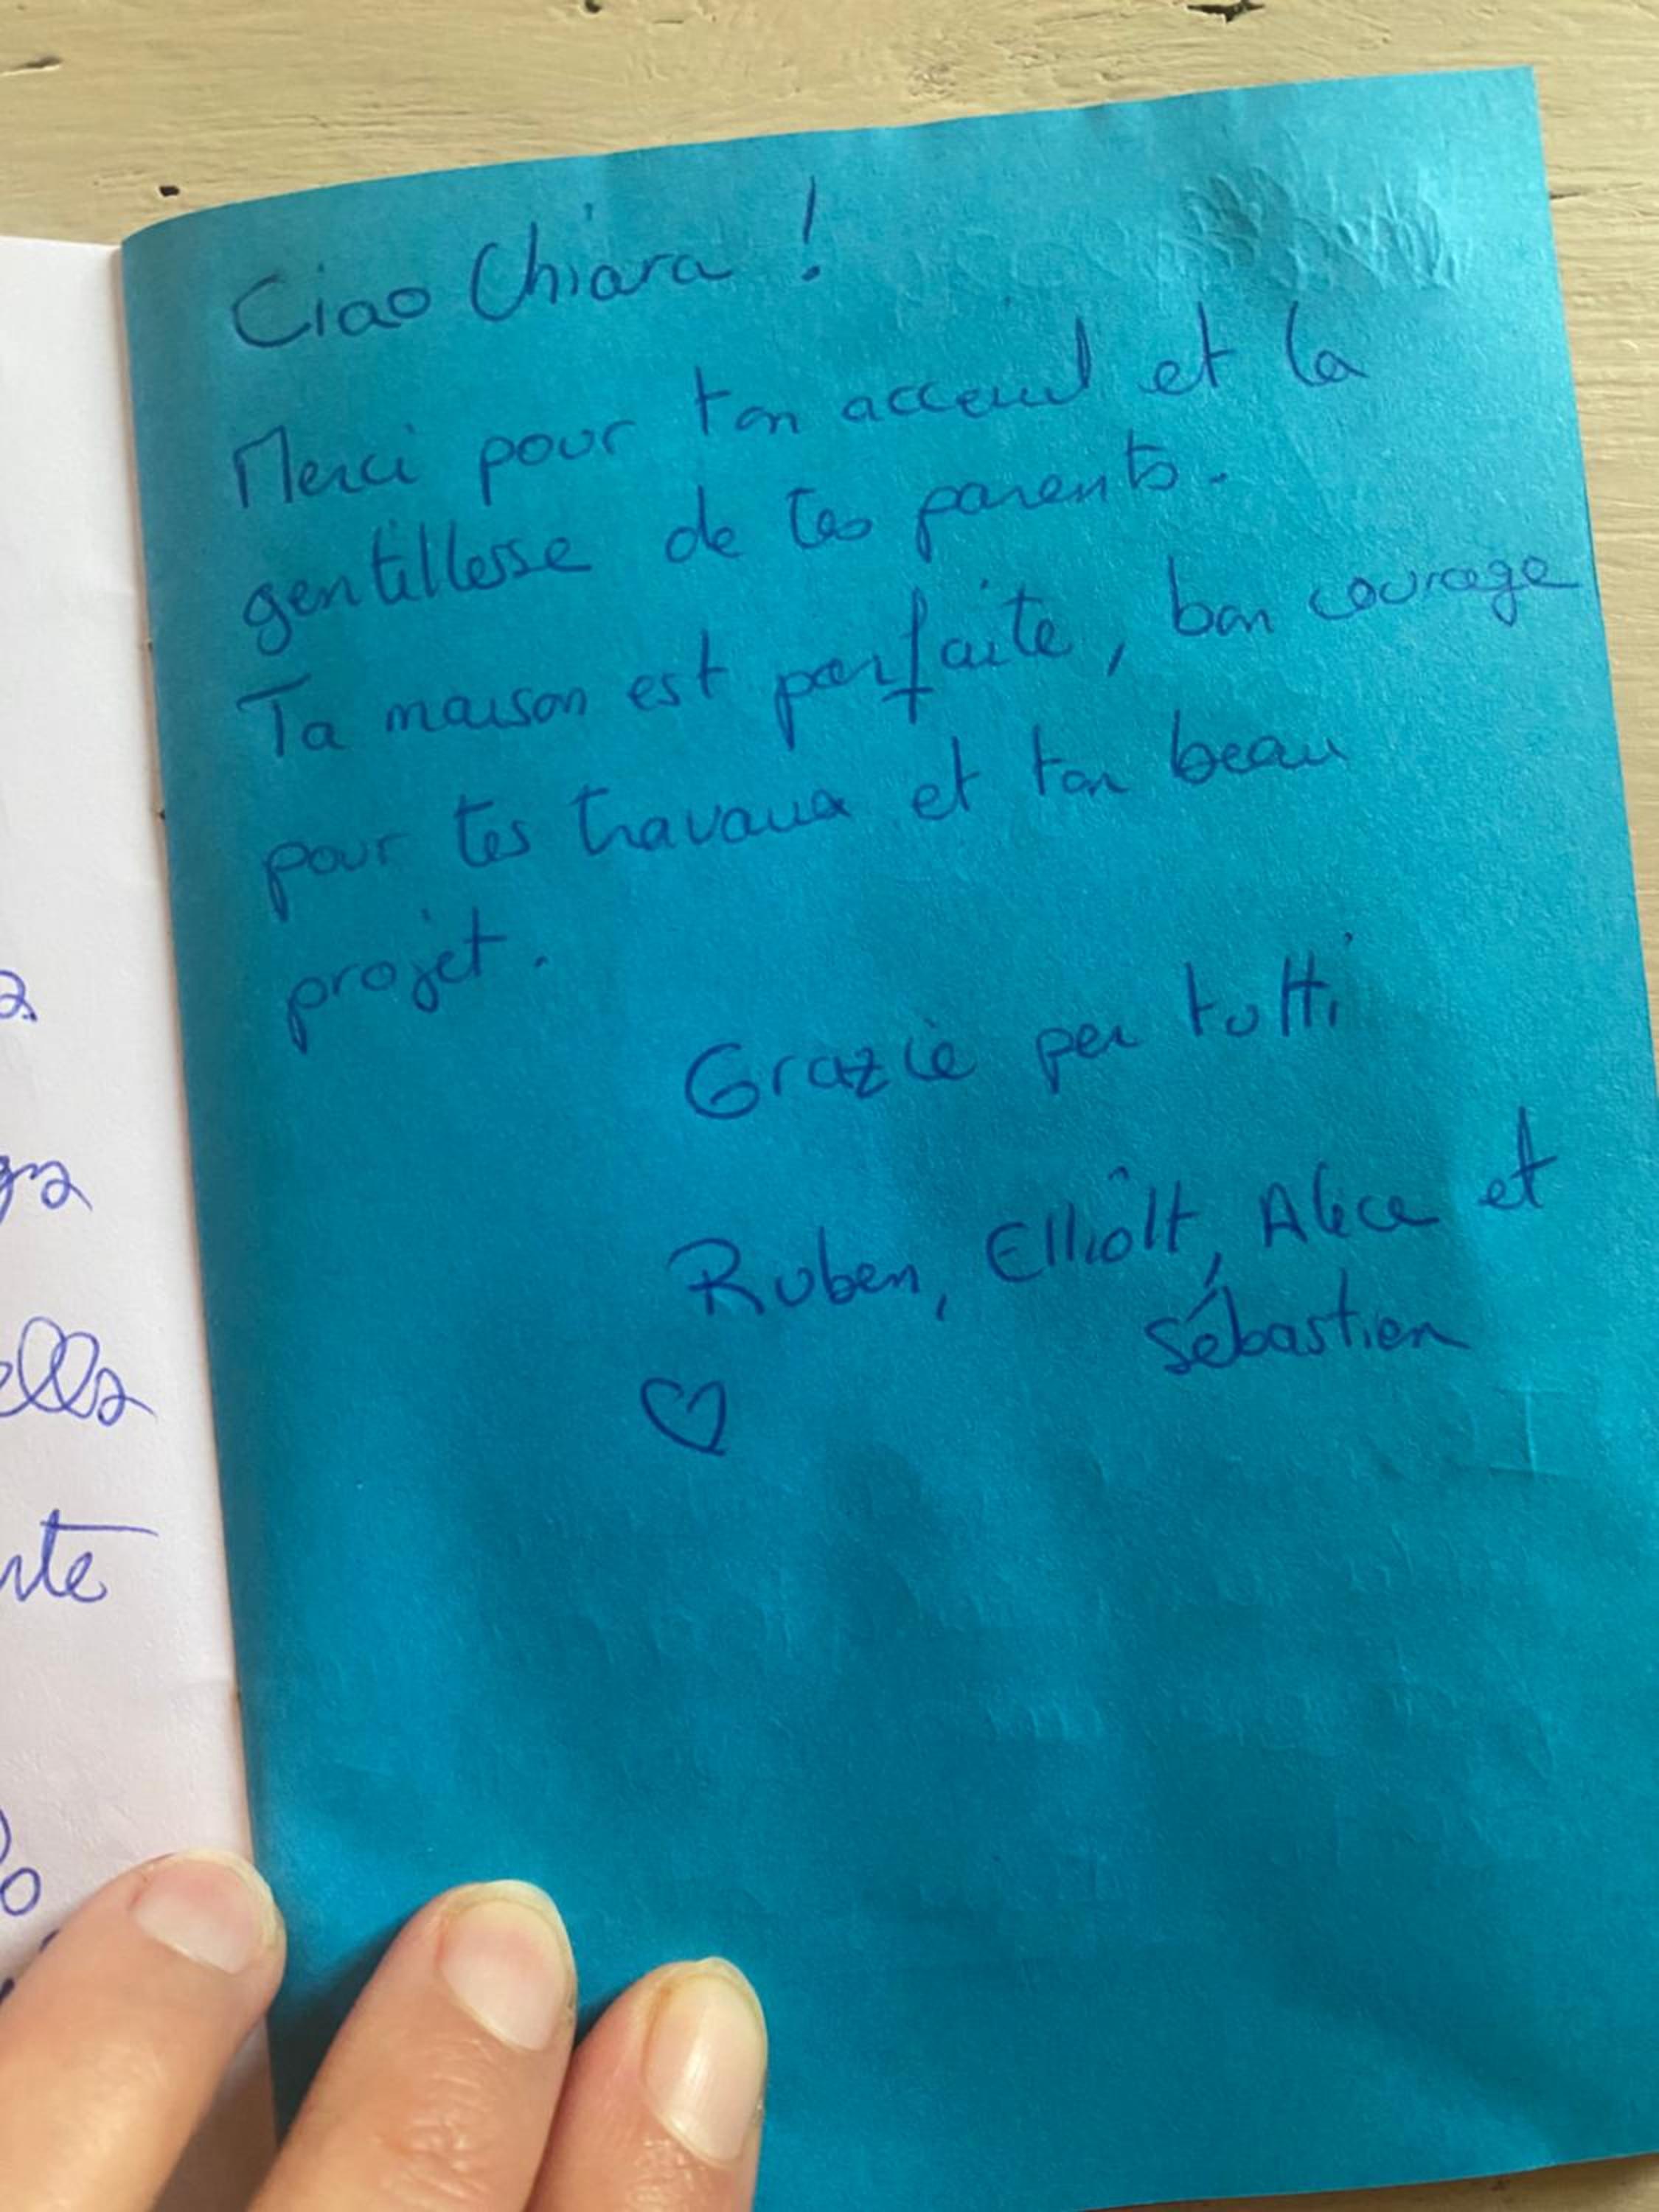 Ciao Chiara !
Merci pour ton acceuil et la
gentillesse de tes parents.
Ta maison est parfaite, bon courage
pour tes travaux et ton beau
projet.
Grazie per tutti
Ruben, Elliott, Alice et
Sébastien